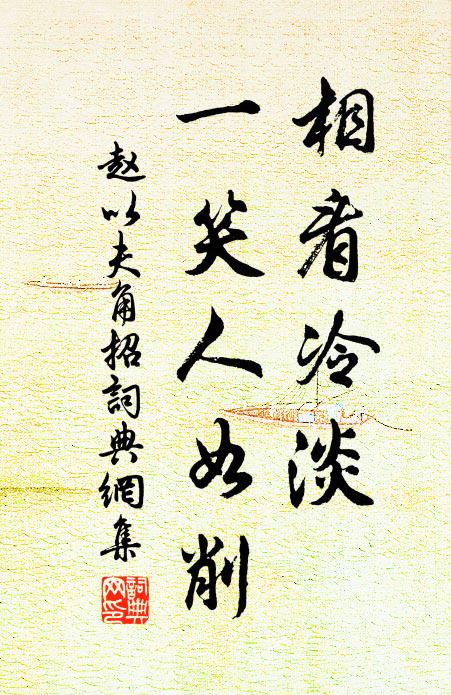 相看冷淡
一笑人如削
赵以夫角招詞典網集
詞典网印